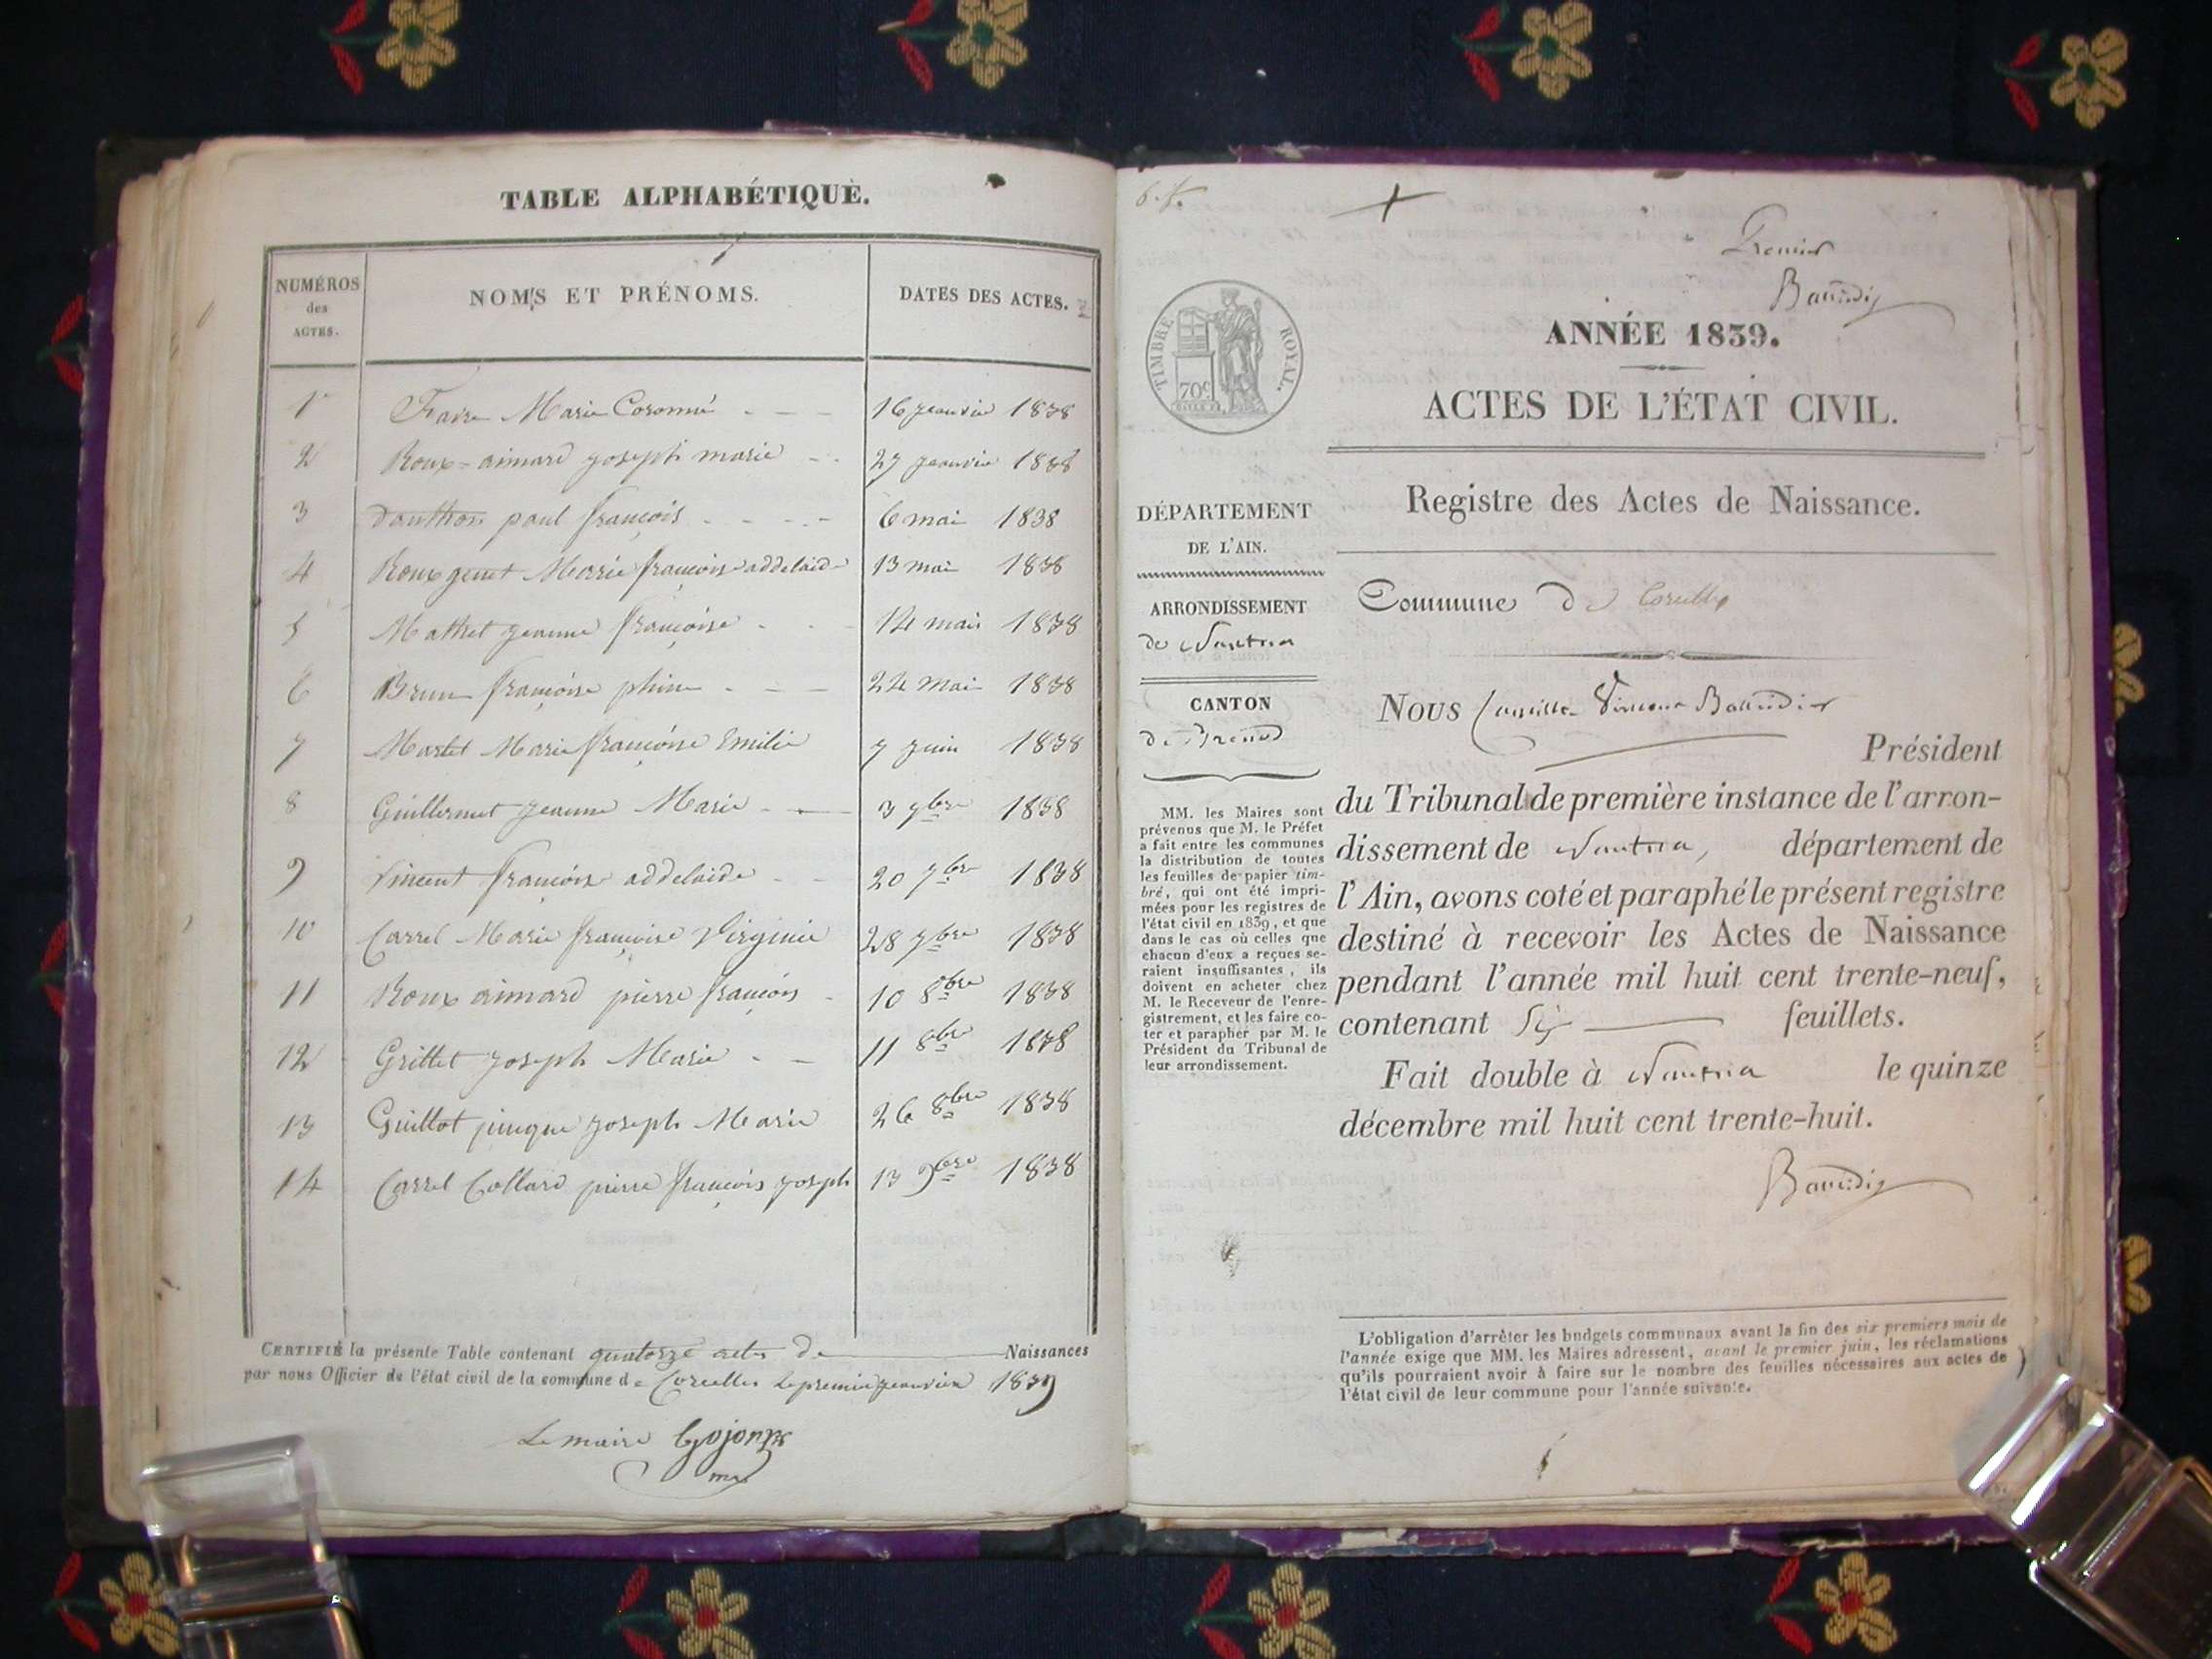 TABLE ALPHABÉTIQUE.
NUMÉROS des ACTES. NOMS ET PRÉNOMS. DATES DES ACTES.
1 Favre Marie 16 jeanvier 1838
2 Roux=aimard joseph marie 27 jeanvier 1838
3 danthon paul françois 6 mai 1838
4 Roux Marie françoise addelaide 13 mai 1838
5 Mathet jeanne françoise 14 mai 1838
6 Brun françoise phine 24 mai 1838
7 Martet Marie françoise Emilie 7 juin 1838
8 Guillermet jeanne Marie 3 7bre 1838
9 Vincent françoise addelaide 20 7bre 1838
10 Carrel Marie françoise Virginie 28 7bre 1838
11 Roux aimard pierre françois 10 8bre 1838
12 Grillet joseph Marie 11 8bre 1838
13 Guillot joseph Marie 26 8bre 1838
14 Carrel Collard pierre françois joseph 13 9bre 1838
CERTIFIÉ la présente Table contenant quatorze actes de Naissances
par nous Officier de l'état civil de la commune de Corcelles le premier jeanvier 1839
Le maire Gojon
6. f.
Premier
Baudin
TIMBRE ROYAL.
70c
ANNÉE 1839.
ACTES DE L'ÉTAT CIVIL.
Registre des Actes de Naissance.
DÉPARTEMENT
DE L'AIN.
ARRONDISSEMENT
de Nantua
CANTON
de Brenod
MM. les Maires sont
prévenus que M. le Préfet
a fait entre les communes
la distribution de toutes
les feuilles de papier tim-
bré, qui ont été impri-
mées pour les registres de
l'état civil en 1839, et que
dans le cas où celles que
chacun d'eux a reçues se-
raient insuffisantes, ils
doivent en acheter chez
M. le Receveur de l'enre-
gistrement, et les faire co-
ter et parapher par M. le
Président du Tribunal de
leur arrondissement.
Commune de Corcelles
Nous Camille
Président
du Tribunal de première instance de l'arron-
dissement de Nantua, département de
l'Ain, avons coté et paraphé le présent registre
destiné à recevoir les Actes de Naissance
pendant l'année mil huit cent trente-neuf,
contenant Six feuillets.
Fait double à Nantua le quinze
décembre mil huit cent trente-huit.
L'obligation d'arrêter les budgets communaux avant la fin des six premiers mois de
l'année exige que MM. les Maires adressent, avant le premier juin, les réclamations
qu'ils pourraient avoir à faire sur le nombre des feuilles nécessaires aux actes de
l'état civil de leur commune pour l'année suivante.